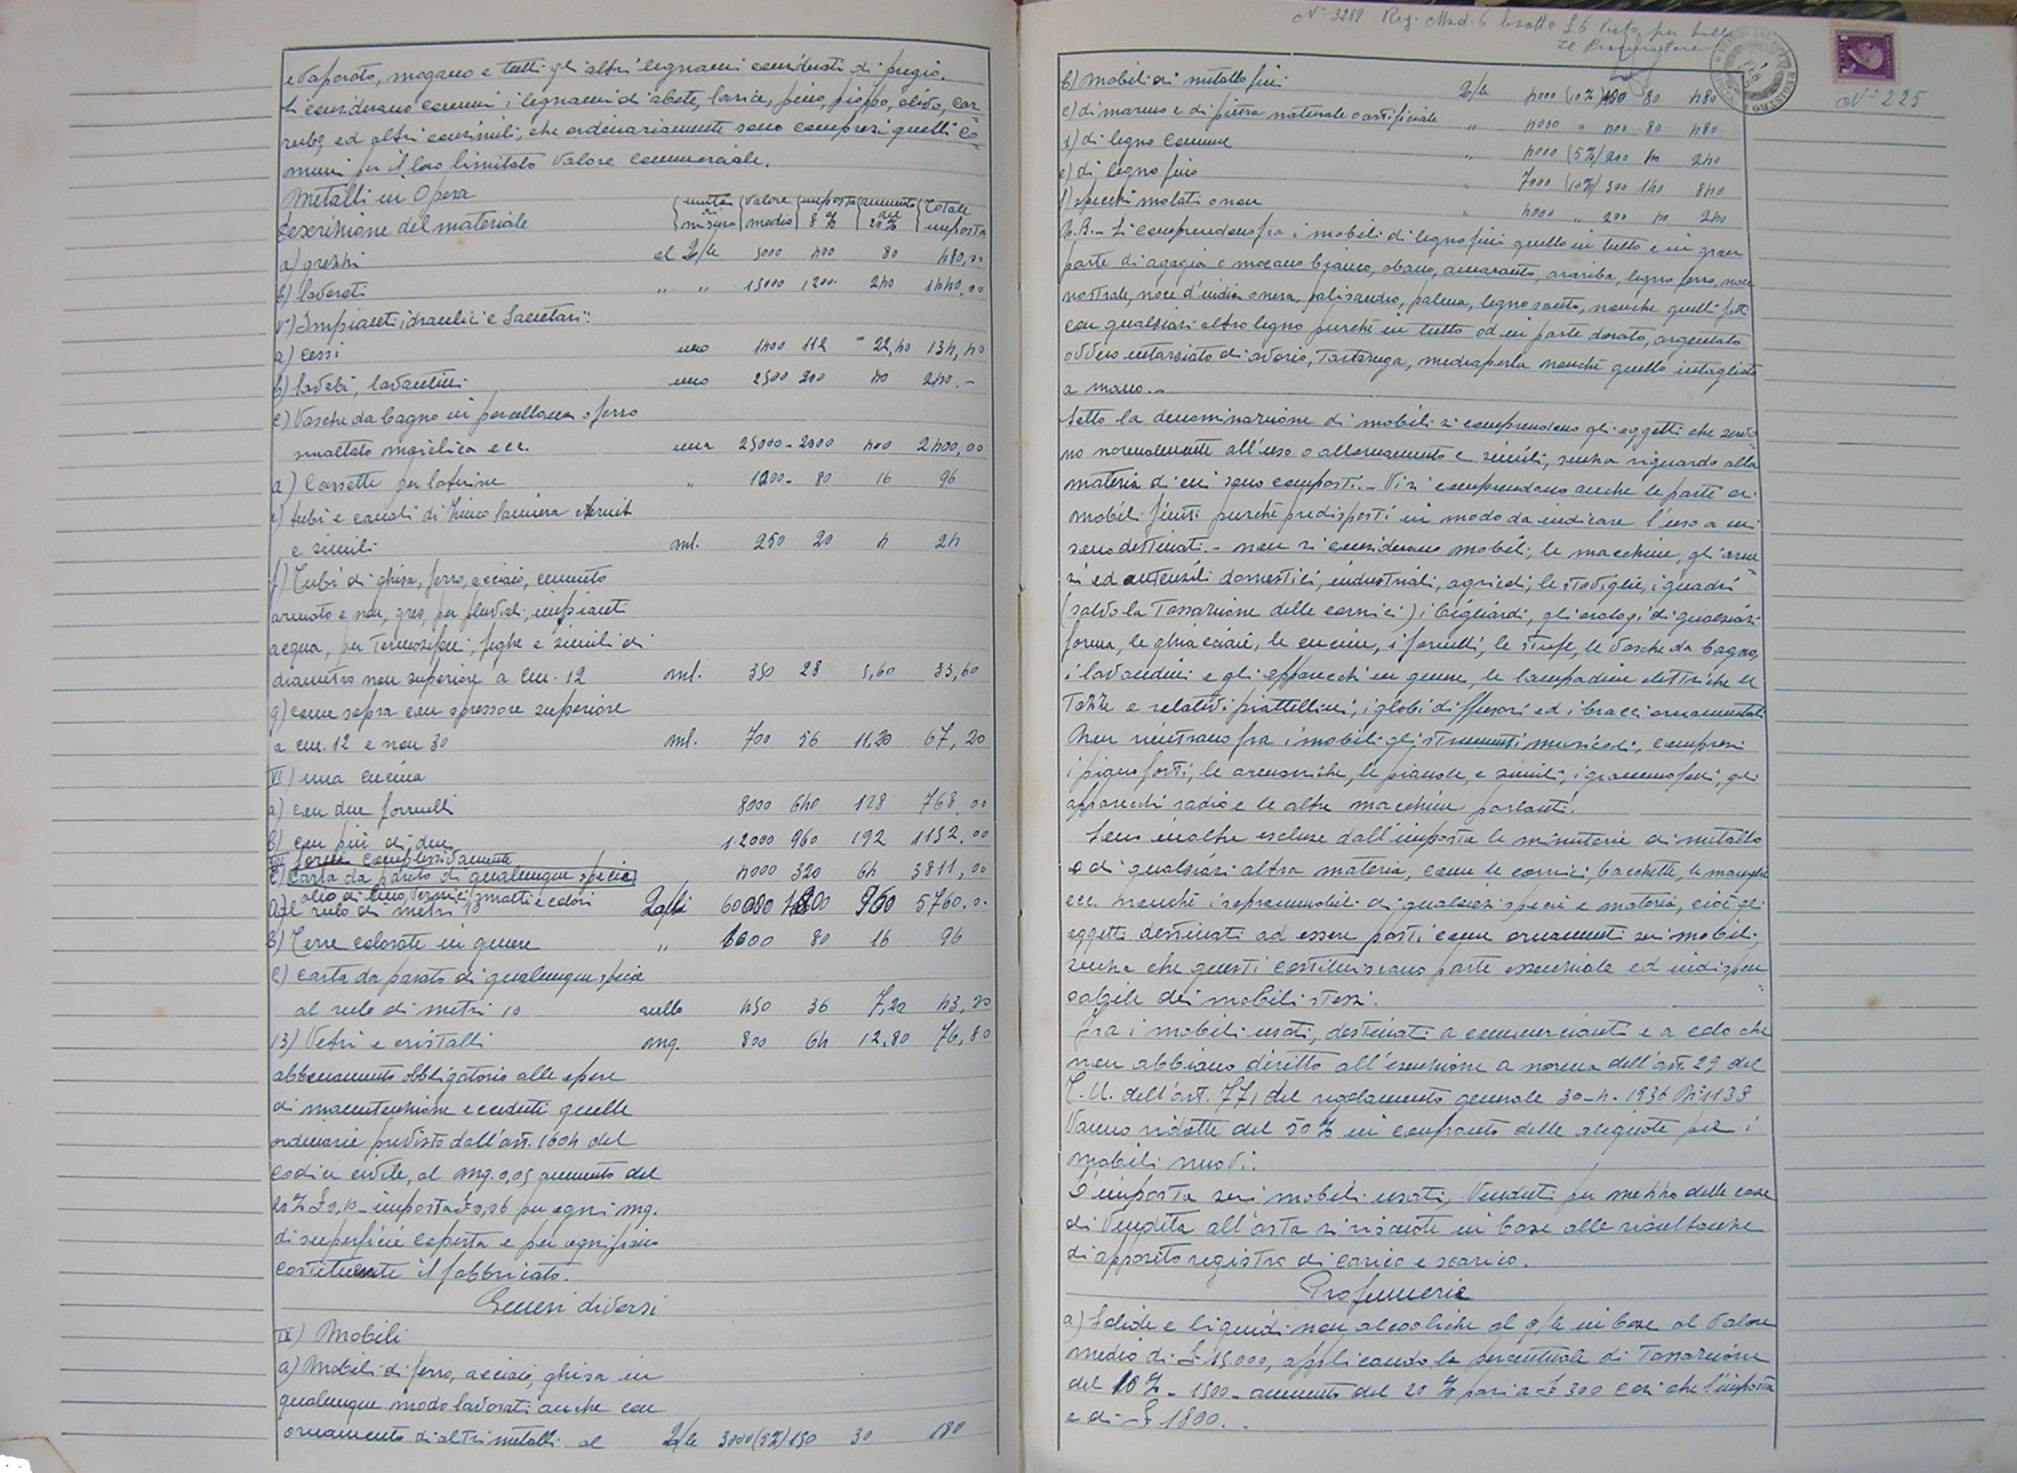 evaporato, mogano e tutti gli altri legnami considerati di pregio.
Si considerano comuni i legnami di abete, larice, pino, pioppo, olivo, car-
rubo, ed altri consimili, che ordinariamente sono compresi quelli co-
muni per il loro limitato valore commerciale.
Metalli in Opera
Descrizione del materiale unità di misura valore medio imposta 8 % aumento del 20 % Totale imposta
a) grezzi al Q/le 5000 400 80 480,00
b) lavorati " " 15000 1200 240 1440,00
V°) Impianti idraulici e Sanitari:
a) cessi uno 1400 112 22,40 134,40
b) lavabi, lavandini uno 2500 200 40 240.-
c) Vasche da bagno in porcellana o ferro
smaltato maiolica ecc. una 25000 - 2000 400 2400,00
d) Cassette per latrine " 1000 - 80 16 96
e) tubi e canali di zinco lamiera eternit
e simili ml. 250 20 4 24
f) Tubi di ghisa, ferro, acciaio, cemento
armato e non, gres, per pluviali, impianti
acqua, per Termosifoni, foghe e simili di
diametro non superiore a cm. 12 ml. 350 28 5,60 33,60
g) come sopra con spessore superiore
a cm. 12 e non 30 ml. 700 56 11,20 67,20
VI) una cucina
a) con due fornelli 8000 640 128 768,00
b) con più di due 12000 960 192 1152,00
c) Carta da parato di qualunque specie 4000 320 64 3811,00
olio di lino, vernici, smalti e colori
al rulo di metri 10 Q/le 60000 4800 960 5760.00
b) Terre colorate in genere " 1000 80 16 96
c) carta da parato di qualunque specie
al rulo di metri 10 rullo 450 36 7,20 43,20
13) Vetri e cristalli mq. 800 64 12,80 76,80
abbonamento obbligatorio alle opere
di manutenzione eccedenti quelle
ordinarie previste dall'art. 1604 del
codice civile, al mq. 0,05 aumento del
20% £ 0,10 - imposta £ 0,06 per ogni mq.
di superficie coperta e per ogni piano
costituente il fabbricato.
Generi diversi
IX) Mobili
a) Mobili di ferro, acciaio, ghisa in
qualunque modo lavorati anche con
ornamento di altri metalli al Q/le 3000 (5%) 150 30 180
N° 3289 Reg. Mod. 6 £ 6 Visto per
Il Procuratore
REGISTRO
N° 225
b) Mobili di metallo fini Q/le 4000 (10%) 400 80 480
c) di marmo e di pietra naturale o artificiale " 4000 " 400 80 480
d) di legno comune " 4000 (5%) 200 40 240
e) di legno fino " 7000 (10%) 700 140 840
f) specchi molati o non " 4000 " 200 40 240
N.B. - Si comprendono fra i mobili di legno fini quello in tutto e in gran
parte di acagia e mogano bianco, ebano, amaranto, arariba, legno ferro, noce
nostrale, noce d'india o nera, palisandro, palma, legno santo, nonche quelli fatti
con qualsiasi altro legno purchè in tutto od in parte dorato, argentato
ovvero intarsiato di avorio, Tartaruga, madreperla nonchè quello intagliato
a mano. -
Sotto la denominazione di mobili si comprendono gli oggetti che servo-
no normalmente all'uso o allornamento e simili, senza riguardo alla
materia di cui sono composti. - Vi si comprendono anche le parti di
mobili finiti purchè predisposti in modo da indicare l'uso a cui
sono destinati. - non si considerano mobili, le macchine, gli arne-
si ed utensili domestici, industriali, agricoli, le stoviglie, i quadri
(salvo la Tassazione delle cornici) i bigliardi, gli orologi di qualsiasi
forma, le ghiacciaie, le cucine, i fornelli, le stufe, le vasche da bagno,
i lavandini e gli apparecchi in genere, le lampadine elettriche le
Tazze e relativi piattellini, i globi diffusori ed i bracci ornamentali
Non rientrano fra i mobili gli strumenti musicali, compresi
i piano forti, le armoniche, le pianole, e simili, i grammofoni, gli
apparecchi radio e le altre macchine parlanti.
Sono inoltre escluse dall'imposta le minuterie di metallo
o di qualsiasi altra materia, come le cornici, bacchette, le maniglie
ecc. nonchè i soprammobili di qualsiasi specie e materia, cioè gli
oggetti destinati ad essere posti come ornamenti sui mobili,
senza che questi costituiscano parte essenziale ed indispen-
sabile dei mobili stessi.
Fra i mobili usati, destinati a commercianti e a colo che
non abbiano diritto all'esenzione a norma dell'art. 29 del
T.U. dell'art. 77, del regolamento generale 30-4-1936 N° 1138
Vanno ridotte del 50% in confronto delle aliquote per i
mobili nuovi.
L'imposta sui mobili usati, Venduti per mezzo delle case
di Vendita all'asta si riscuote in base alle risultanze
di apposito registro di carico e scarico.
Profumerie
a) Solide e liquidi non alcooliche al q/le in base al Valore
medio di £ 15.000, applicando la percentuale di Tassazione
del 10% - 1500 - aumento del 20% pari a £ 300 così che l'imposta
e di £ 1800. .